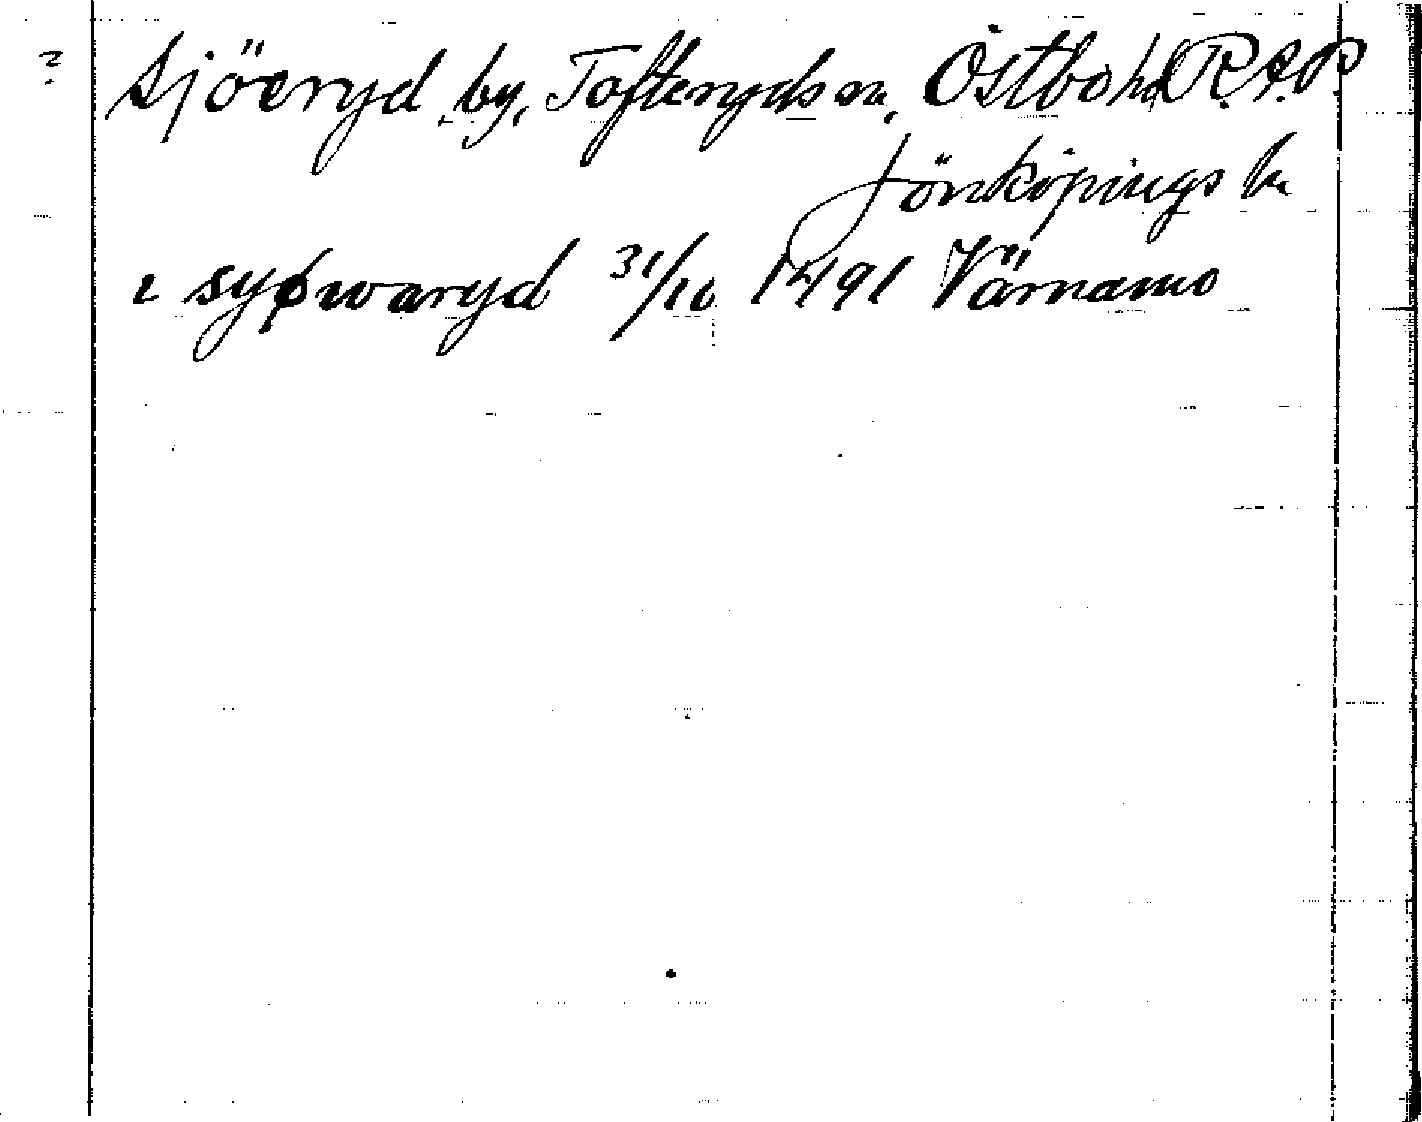 ? Sjöeryd by, Tofteryds sn, Östbo hd R.A.P.
Jönköpings l.
i syøwaryd 31/10 1491 Värnamo